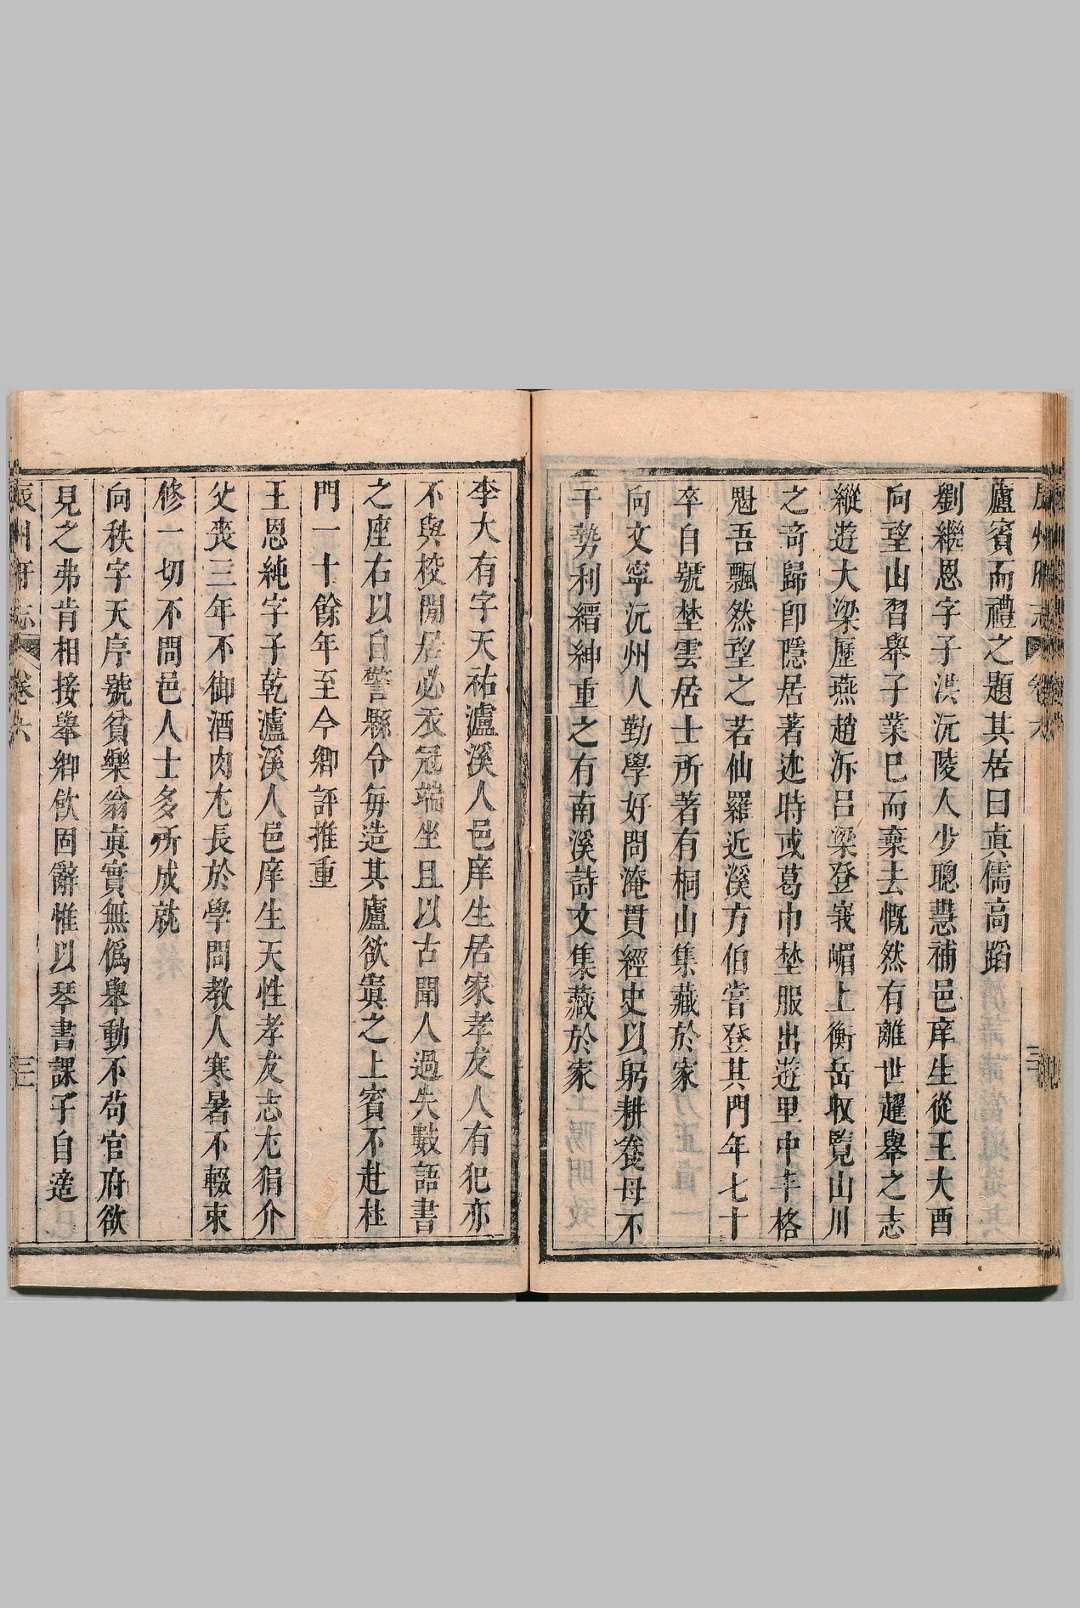 辰州府志 卷六
廬賓而禮之題其居曰眞儒高蹈
劉繼思字子洪沅陵人少聰慧補邑庠生從王大酉
向望山習舉子業巳而棄去慨然有離世躍舉之志
縱遊大梁歷燕趙泝呂梁登峩嵋上衡岳收覧山川
之竒歸卽隱居著述時或葛巾埜服出遊里中丰格
魁吾飄然望之若仙羅近溪方伯嘗登其門年七十
卒自號埜雲居士所著有桐山集藏於家
向文寧沅州人勤學好問淹貫經史以躬耕養母不
干勢利縉紳重之有南溪詩文集藏於家
李大有字天祐瀘溪人邑庠生居家孝友人有犯亦
不與校閒居必衣冠端坐且以古聞人過失數語書
之座右以自警縣令每造其廬欲賓之上賓不赴杜
門一十餘年至今鄉評推重
王恩純字子乾瀘溪人邑庠生天性孝友志尢狷介
父喪三年不御酒肉尢長於學問教人寒暑不輟束
修一切不問邑人士多所成就
向秩字天序號貧樂翁眞實無僞舉動不苟官府欲
見之弗肯相接舉鄉飮固辭惟以琴書課子自適
辰州府志 卷六 三